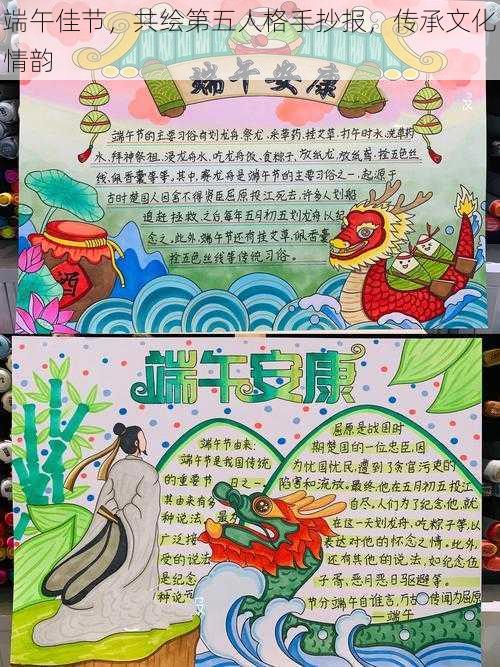 端午佳节，共绘第五人格手抄报，传承文化
情韵
端午安康
端午节的主要习俗有划龙舟、祭龙、采草药、挂艾草、打午时水、洗草药
水、拜神祭祖、浸龙舟水、吃龙舟饭、食粽子、放纸龙、放纸鸢、拴五色丝
线、佩香囊等等，其中，赛龙舟是端午节的主要习俗之一，起源于
古时楚国人因舍不得贤臣屈原投江死去，许多人划船
追赶拯救，之后每年五月初五划龙舟以纪
念之。此外，端午节还有挂艾草，佩香囊
拴五色丝线等传统习俗。
酒
端午安康
端午节由来：
端午节是我国传统
的节日之一，
其由来有多
种说法，最为
广泛接
受的说法
是纪念
种说
屈原是战国时
期楚国的一位忠臣，因
为忧国忧民，遭到了贪官污吏的
陷害和流放。最终，他在五月初五投江
自尽。人们为了纪念他，就
在这一天划龙舟、吃粽子等以
表达对他的怀念之情。此外，
还有其他的说法，如纪念伍
子胥、恶月恶日驱避等。
节分端午自谁言，万古传闻为屈原
——端午